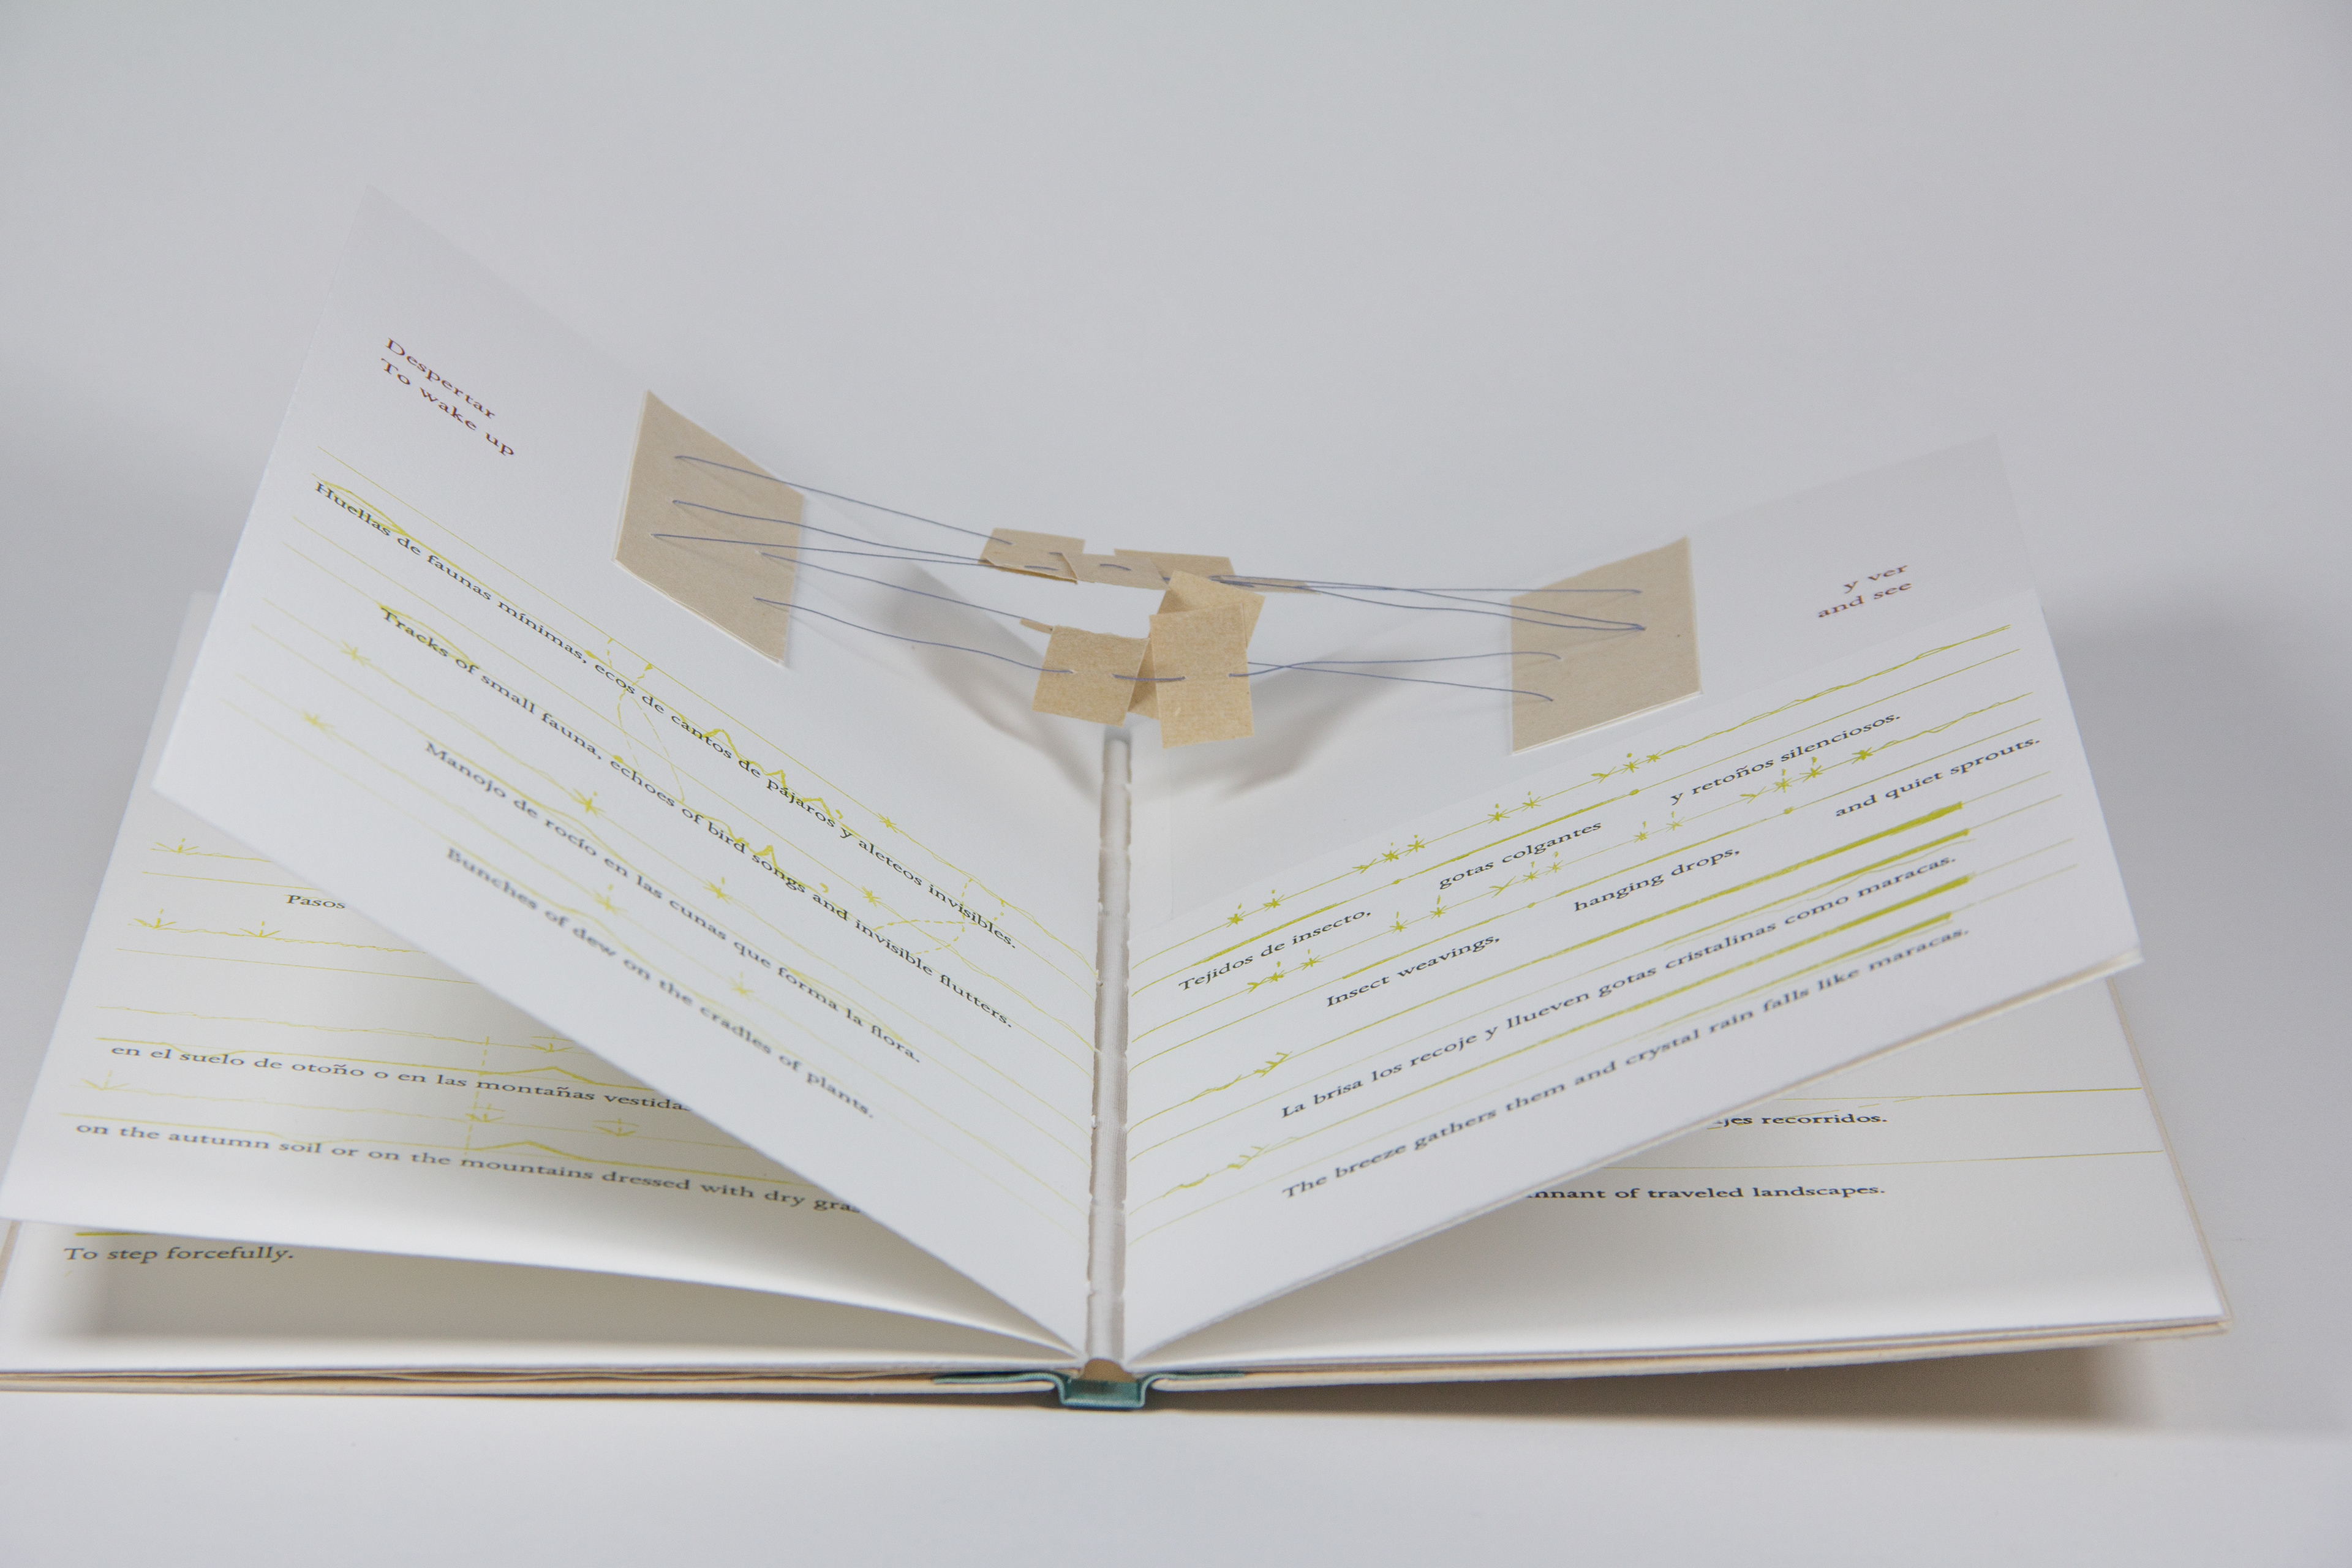 Despertar
To wake up
Huellas de faunas mínimas, ecos de cantos de pájaros y aleteos invisibles.
Tracks of small fauna, echoes of bird songs and invisible flutters.
Manojo de rocío en las cunas que forma la flora.
Bunches of dew on the cradles of plants.
y ver
and see
Tejidos de insecto, gotas colgantes y retoños silenciosos.
Insect weavings, hanging drops, and quiet sprouts.
La brisa los recoje y llueven gotas cristalinas como maracas.
The breeze gathers them and crystal rain falls like maracas.
Pasos
en el suelo de otoño o en las montañas
on the autumn soil or on the mountains dressed with dry
To step forcefully.
recorridos.
of traveled landscapes.